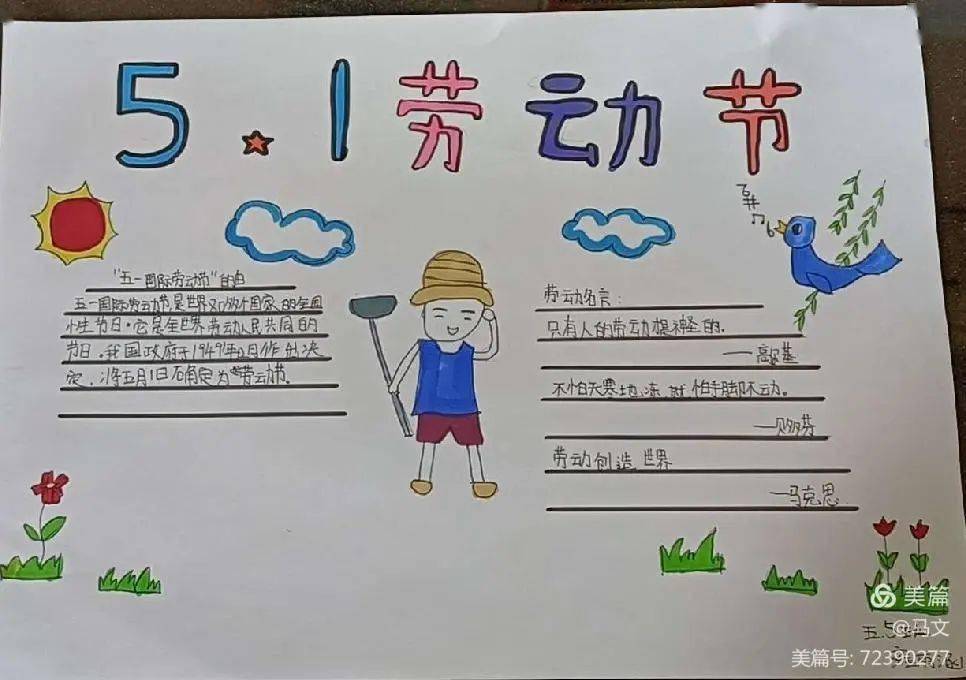 5.1劳动节
"五一国际劳动节"的由
五一国际劳动节是世界80多个国家的全国
性节日。它是全世界劳动人民共同的
节日。我国政府于1949年12月作出决
定,将五月1日确定为"劳动节。
劳动名言:
只有人的劳动神圣的.
——高尔基
不怕天寒地冻,就怕手脚不动。
劳动创造世界
——马克思
美篇
五.5班
@马文
美篇号: 72390277